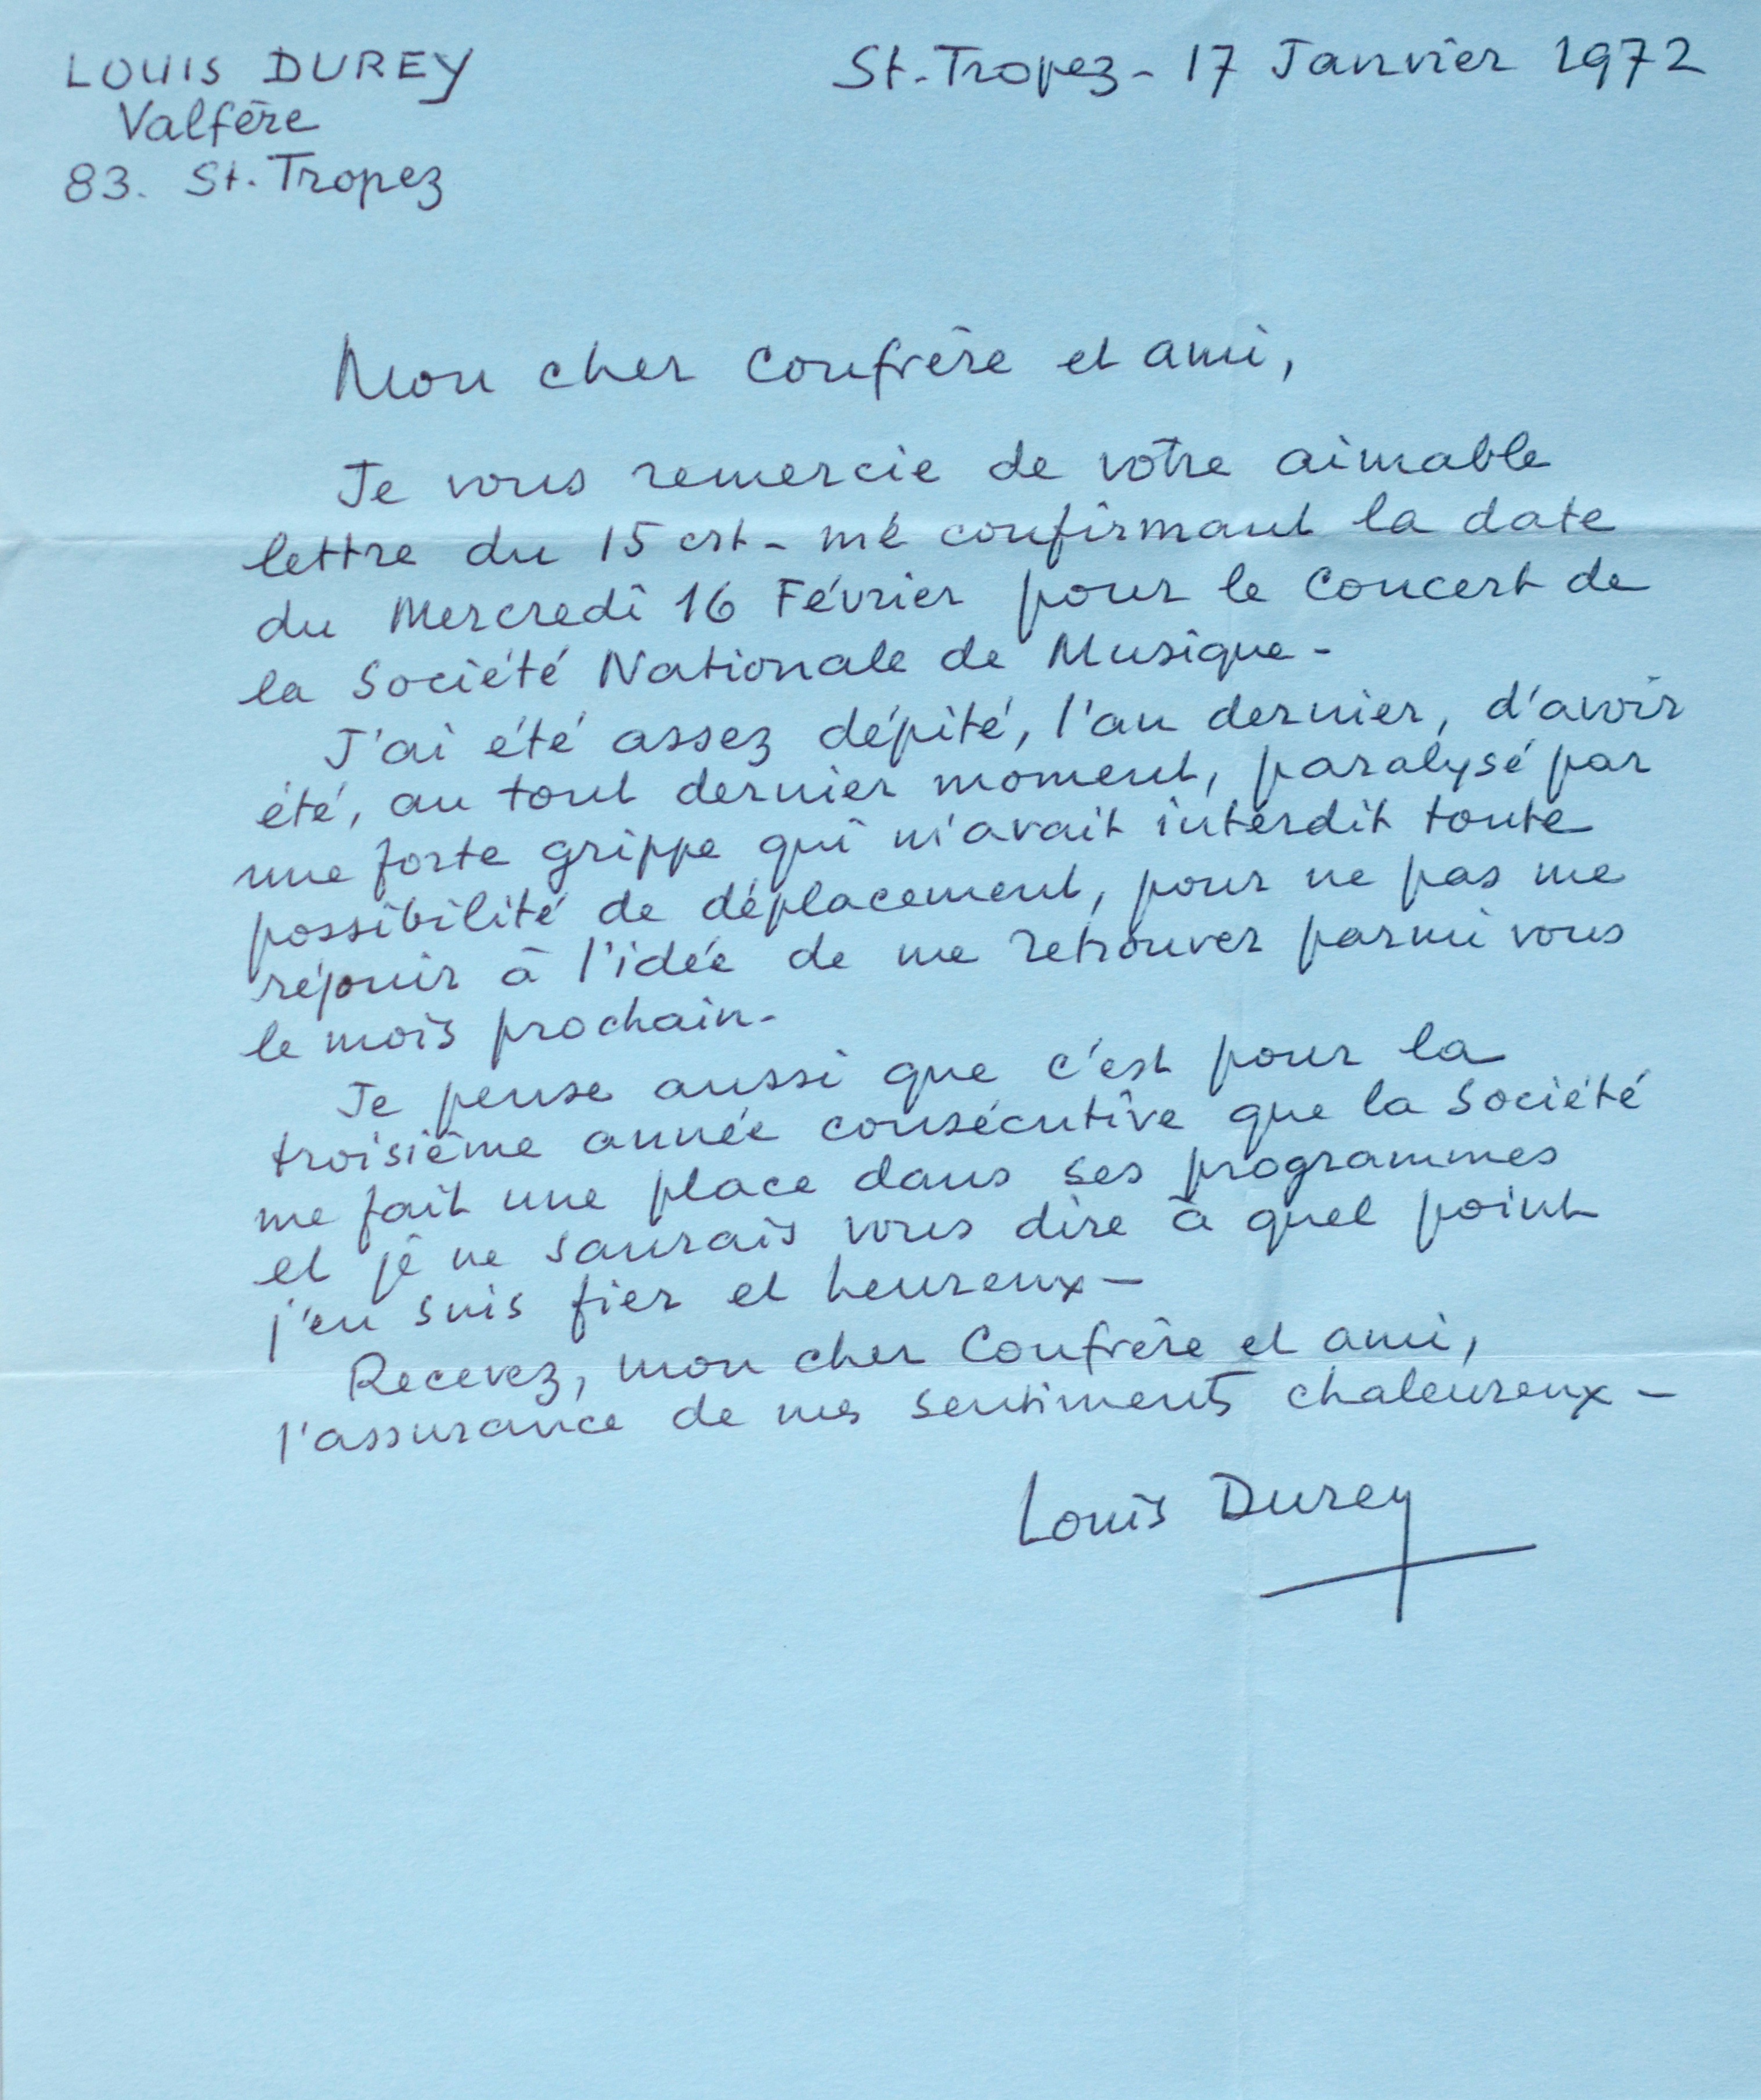 LOUIS DUREY
St. Tropez - 17 Janvier 1972
Valfère
83. St. Tropez
Mon cher Confrère et ami,
Je vous remercie de votre aimable
lettre du 15 crt - me confirmant la date
du Mercredi 16 Février pour le Concert de
la Société Nationale de Musique -
J'ai été assez dépité, l'an dernier, d'avoir
été, au tout dernier moment, paralysé par
une forte grippe qui m'avait interdit toute
possibilité de déplacement, pour ne pas me
réjouir à l'idée de me retrouver parmi vous
le mois prochain -
Je pense aussi que c'est pour la
troisième année consécutive que la Société
me fait une place dans ses programmes
et je ne saurais vous dire à quel point
j'en suis fier et heureux -
Recevez, mon cher Confrère et ami,
l'assurance de mes sentiments chaleureux -
Louis Durey